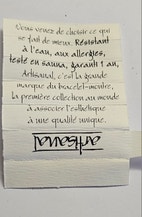 Vous venez de choisir ce qui
se fait de mieux. Résistant
à l'eau, aux allergies,
testé en sauna, garanti 1 an,
Artisanal, c'est la grande
marque du bracelet-montre,
la première collection au monde
à associer l'esthétique
à une qualité unique.